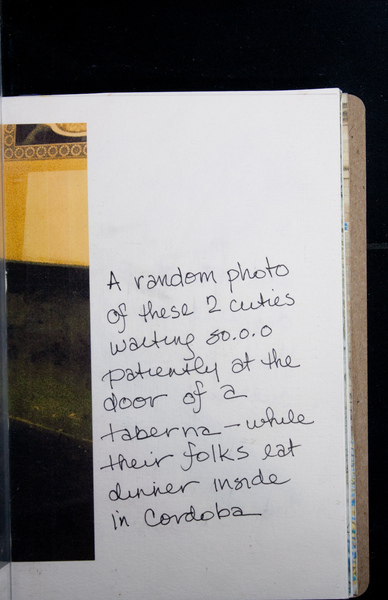 A random photo
of these 2 cuties
waiting so.o.o
patiently at the
door of a
taberna — while
their folks eat
dinner inside
in Cordoba